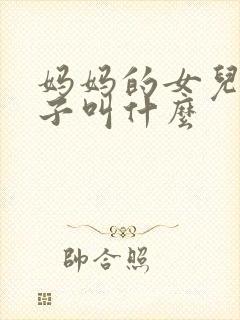 妈妈的女兒
子叫什麼
帥合照